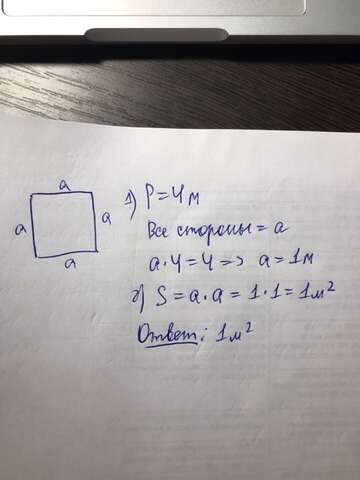 a
a
a
a
1) P=4м
Все стороны = a
a·4=4 => a=1м
2) S=a·a=1·1=1м²
Ответ: 1м²